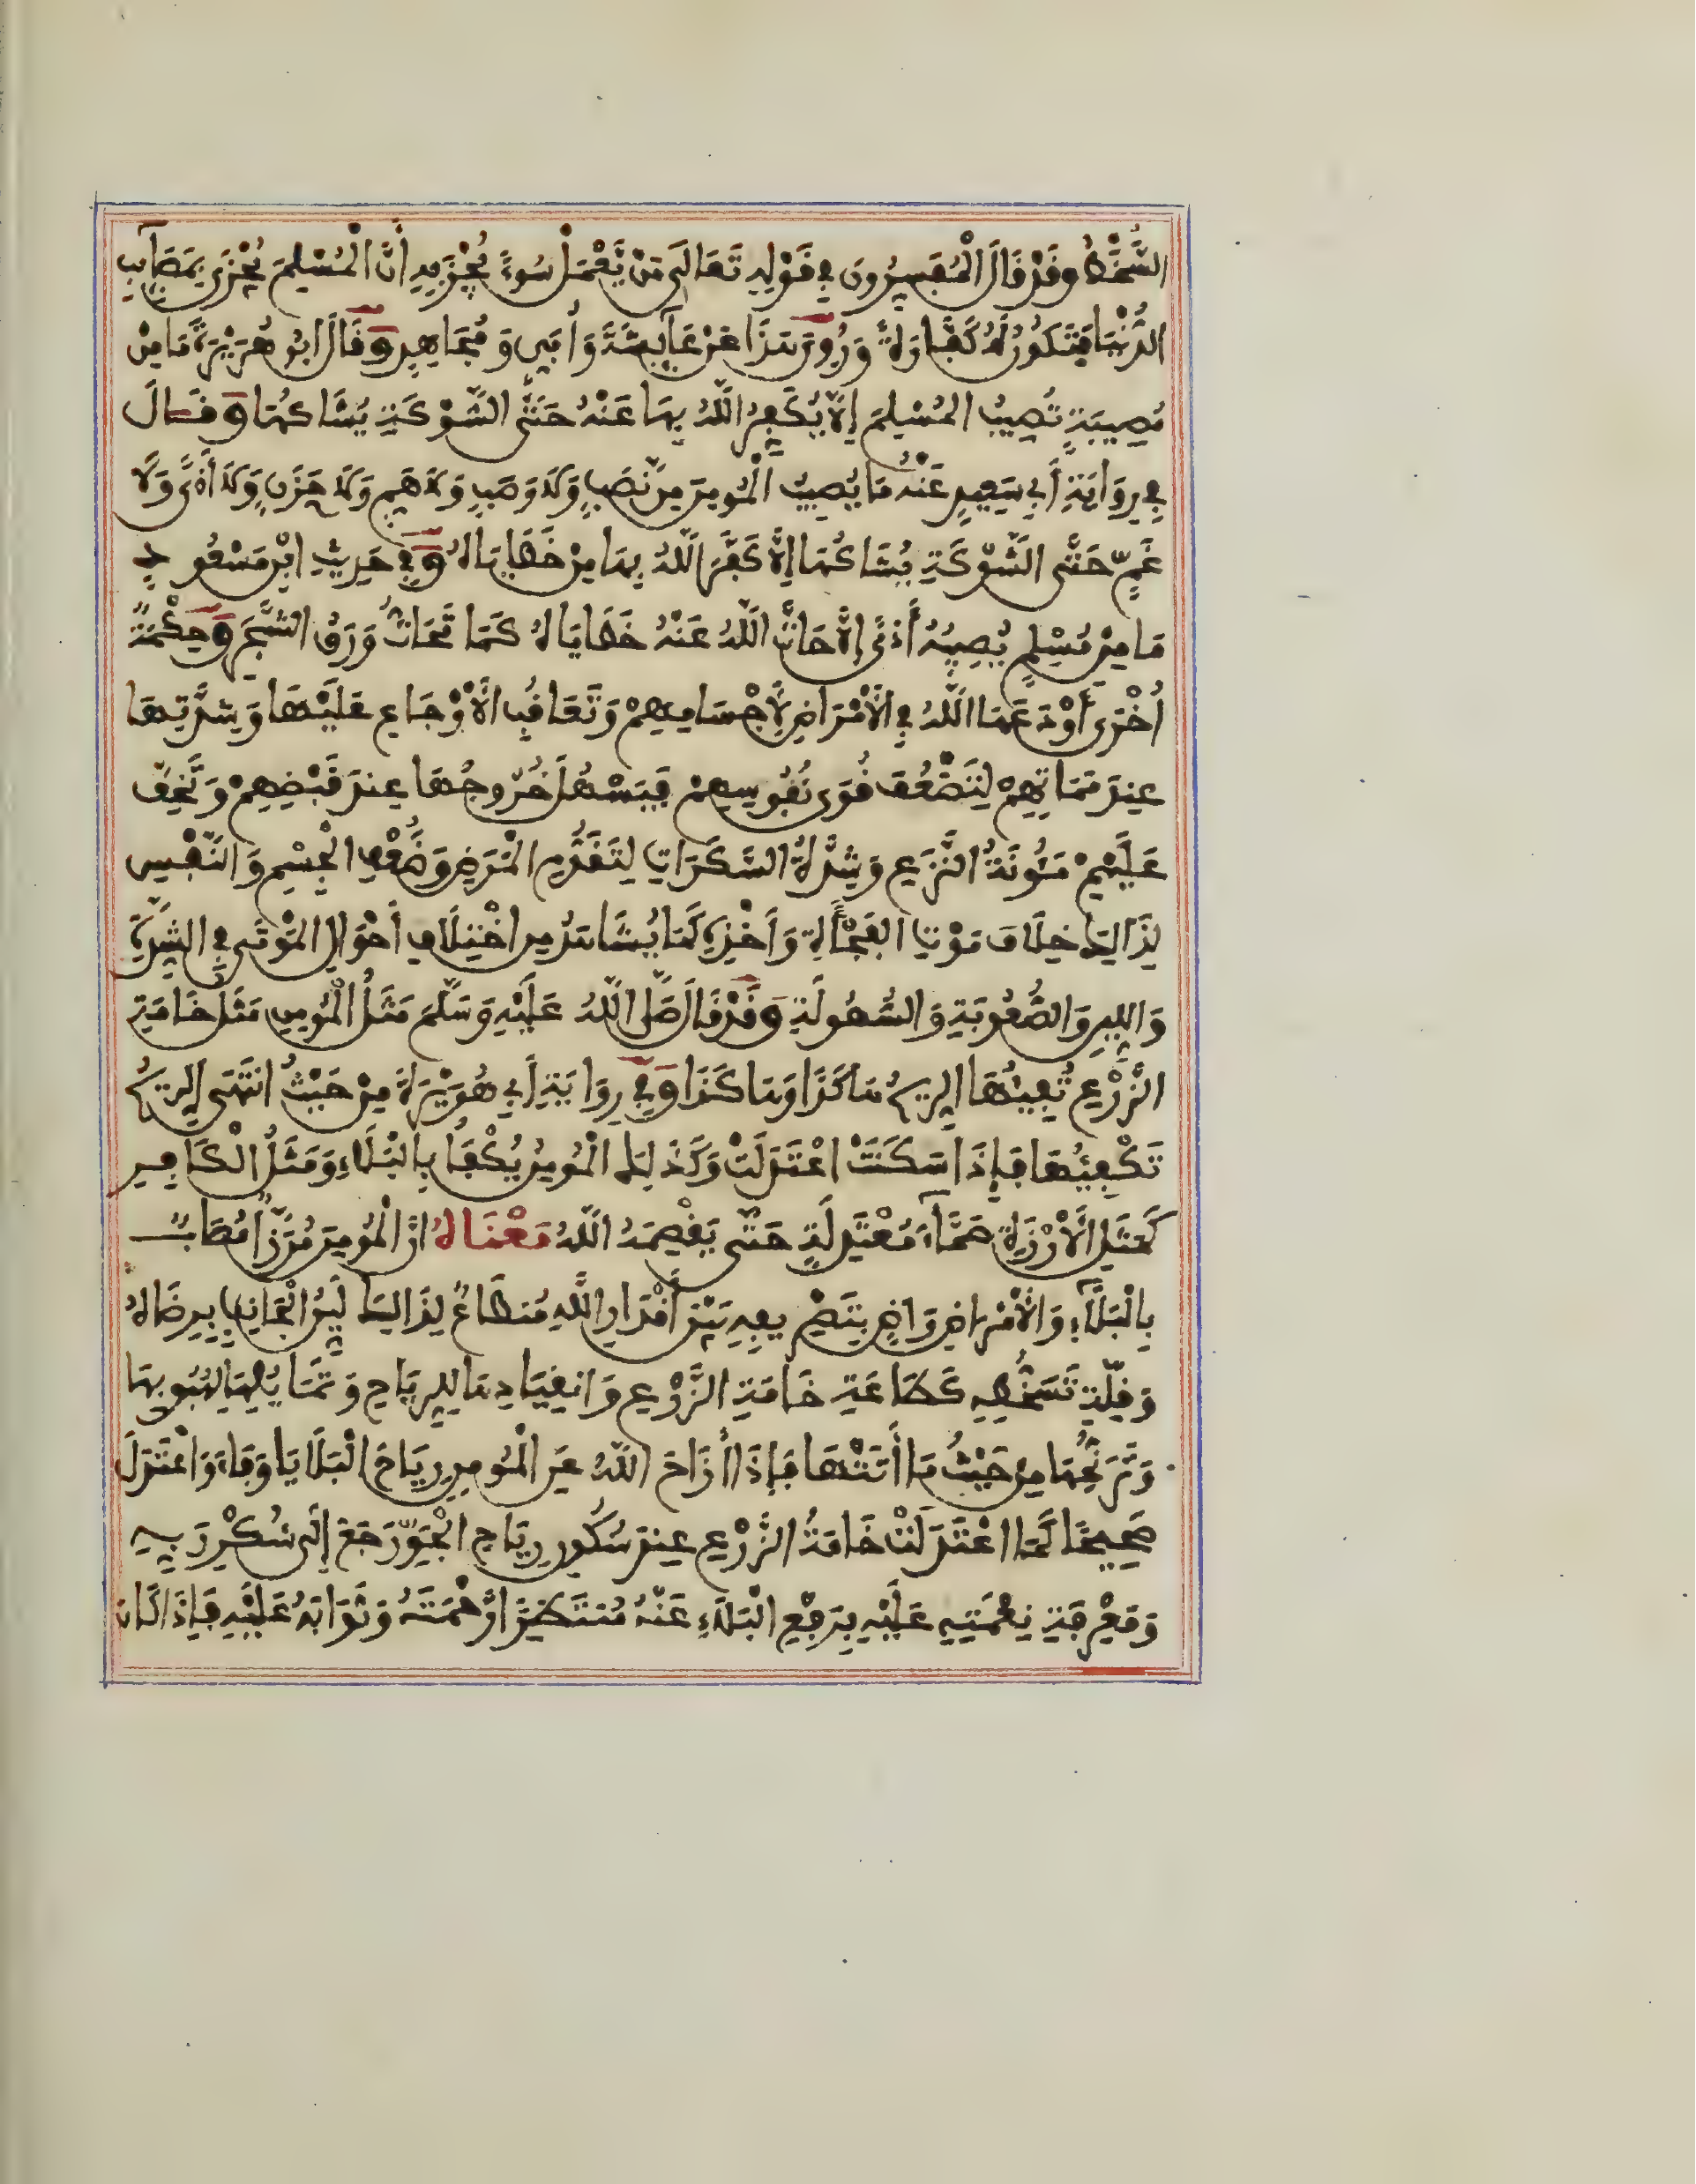 السُّخْطُ وَقَدْ قَالَ الْمُفَسِّرُونَ فِي قَوْلِهِ تَعَالَى مَنْ يَّعْمَلْ سُوءًا يُجْزَ بِهِ اِنَّ الْمُسْلِمَ يُجْزَى بِمَصَآئِبِ
الدُّنْيَا فَتَكُونُ لَهُ كَفَّارَةً وَرُوِيَ هَذَا عَنْ عَآئِشَةَ وَأُبَيٍّ وَمُجَاهِدٍ وَقَالَ ابُو هُرَيْرَةَ مَا مِنْ
مُصِيبَةٍ تُصِيبُ الْمُسْلِمَ إِلاَّ يُكَفِّرُ اللَّهُ بِهَا عَنْهُ حَتَّى الشَّوْكَةِ يُشَاكُهَا وَقَالَ
فِي رِوَايَةِ أَبِي سَعِيدٍ عَنْهُ مَا يُصِيبُ الْمُومِنَ مِن نَّصَبٍ وَلَا وَصَبٍ وَلَا هَمٍّ وَلَا حَزَنٍ وَلَا أَذًى وَلَا
غَمٍّ حَتَّى الشَّوْكَةِ يُشَاكُهَا إِلاَّ كَفَّرَ اللَّهُ بِهَا مِنْ خَطَايَاهُ وَفِي حَدِيثِ ابْنِ مَسْعُودٍ
مَا مِنْ مُسْلِمٍ يُصِيبُهُ أَذًى إِلاَّ حَاتَّ اللَّهُ عَنْهُ خَطَايَاهُ كَمَا تَحَاتُّ وَرَقُ الشَّجَرِ وَحِكْمَةٌ
أُخْرَى أَوْدَعَهَا اللَّهُ فِي الْأَمْرَاضِ لِأَجْسَامِهِمْ وَتَعَاقُبِ الْأَوْجَاعِ عَلَيْهَا وَشِدَّتِهَا
عِندَ مَمَاتِهِمْ لِتَضْعُفَ قُوَى نُفُوسِهِمْ فَيَسْهُلَ خُرُوجُهَا عِندَ قَبْضِهِمْ وَتَخِفَّ
عَلَيْهِمْ مَئُونَةُ النَّزْعِ وَشِدَّةُ السَّكَرَاتِ لِتَقَدُّمِ الْمَرَضِ وَضُعْفِ الْجِسْمِ وَالنَّفْسِ
لِذَالِكَ خِلَافَ مَوْتِ الْفَجْأَةِ وَأَخْذِهِ كَمَا يُشَاهَدُ مِنِ اخْتِلَافِ أَحْوَالِ الْمَوْتَى فِي الشِّدَّةِ
وَاللِّينِ وَالصُّعُوبَةِ وَالسُّهُولَةِ وَقَدْ قَالَ صَلَّى اللَّهُ عَلَيْهِ وَسَلَّمَ مَثَلُ الْمُومِنِ مَثَلُ خَامَةِ
الزَّرْعِ تُفِيئُهَا الرِّيحُ هَاكَذَا وَهَاكَذَا وَفِي رِوَايَةِ أَبِي هُرَيْرَةَ مِنْ حَيْثُ انتَهَى الرِّيحُ
تَكْفِيئُهَا فَإِذَا سَكَنَتْ اعْتَدَلَتْ وَكَذَلِكَ الْمُومِنُ يُكْفَأُ بِالْبَلَاءِ وَمَثَلُ الْكَافِرِ
كَمَثَلِ الْأَرْزَةِ صَمَّآءَ مُعْتَدِلَةٍ حَتَّى يَقْصِمَهُ اللَّهُ مَعْنَاهُ انَّ الْمُومِنَ مُرَزَّأٌ مُصَابٌ
بِالْبَلَآءِ وَالْأَمْرَاضِ رَاضٍ بِتَصْرِيفِهِ بَيْنَ أَقْدَارِ اللَّهِ مُنطَاعٌ لِذَالِكَ لَيِّنُ الْجَانِبِ بِرِضَاهُ
وَقِلَّةِ تَسَخُّطِهِ كَطَاعَةِ خَامَةِ الزَّرْعِ وَانقِيَادِهَا لِلرِّيَاحِ وَتَمَايُلِهَا لِهُبُوبِهَا
وَتَرَنُّحِهَا مِنْ حَيْثُ مَا أَتَتْهَا فَإِذَا أَزَاحَ اللَّهُ عَنِ الْمُومِنِ رِيَاحَ الْبَلَايَا وَفَاءَ وَاعْتَدَلَ
صَحِيحًا كَمَا اعْتَدَلَتْ خَامَةُ الزَّرْعِ عِندَ سُكُونِ رِيَاحِ الْجَوِّ رَجَعَ إِلَى شُكْرِ رَبِّهِ
وَمَعْرِفَةِ نِعْمَتِهِ عَلَيْهِ بِرَفْعِ الْبَلَاءِ عَنْهُ مُنتَظِرًا رَّحْمَتَهُ وَثَوَابَهُ عَلَيْهِ فَإِذَا كَانَ